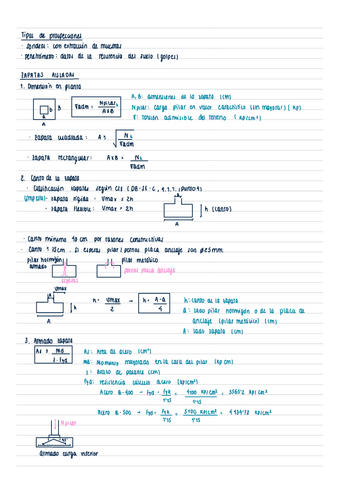 Tipos de prospecciones
- Sondeos: con extracción de muestras
- Penetrómetro: datos de la resistencia del suelo (golpes)
ZAPATAS AISLADAS
1. Dimensión en planta
B
A
σadm = Npilar / A×B
A, B: dimensiones de la zapata (cm)
Npilar: carga pilar en valor característico (sin mayorar) (kp)
σ: tensión admisible del terreno (kp/cm²)
- Zapata cuadrada: A = √ N / σadm
- Zapata rectangular: A×B = N / σadm
2. Canto de la zapata
- Clasificación zapatas según CTE (DB-SE-C, 4.1.1, punto 4)
- Zapata rígida → Vmax ≤ 2h
- Zapata flexible: Vmax > 2h
h (canto)
A
- Canto mínimo 40 cm por razones constructivas
pilar hormigón
armado
pilar metálico
pernos placa anclaje
Vmax
h
A
h = Vmax / 2 → h = A-a / 4
h: canto de la zapata
a: lado pilar hormigón o de la placa de
anclaje (pilar metálico) (cm)
A: lado zapata (cm)
3. Armado zapata
As: área de acero (cm²)
Md: Momento mayorado en la cara del pilar (kp·cm)
z: Brazo de palanca (cm)
fyd: resistencia cálculo acero (kp/cm²)
Acero B-400 → fyd = fyk / 1'15 = 4100 kp/cm² / 1'15 = 3565'2 kp/cm²
Acero B-500 → fyd = fyk / 1'15 = 5100 kp/cm² / 1'15 = 4434'78 kp/cm²
Npilar
armado carga inferior